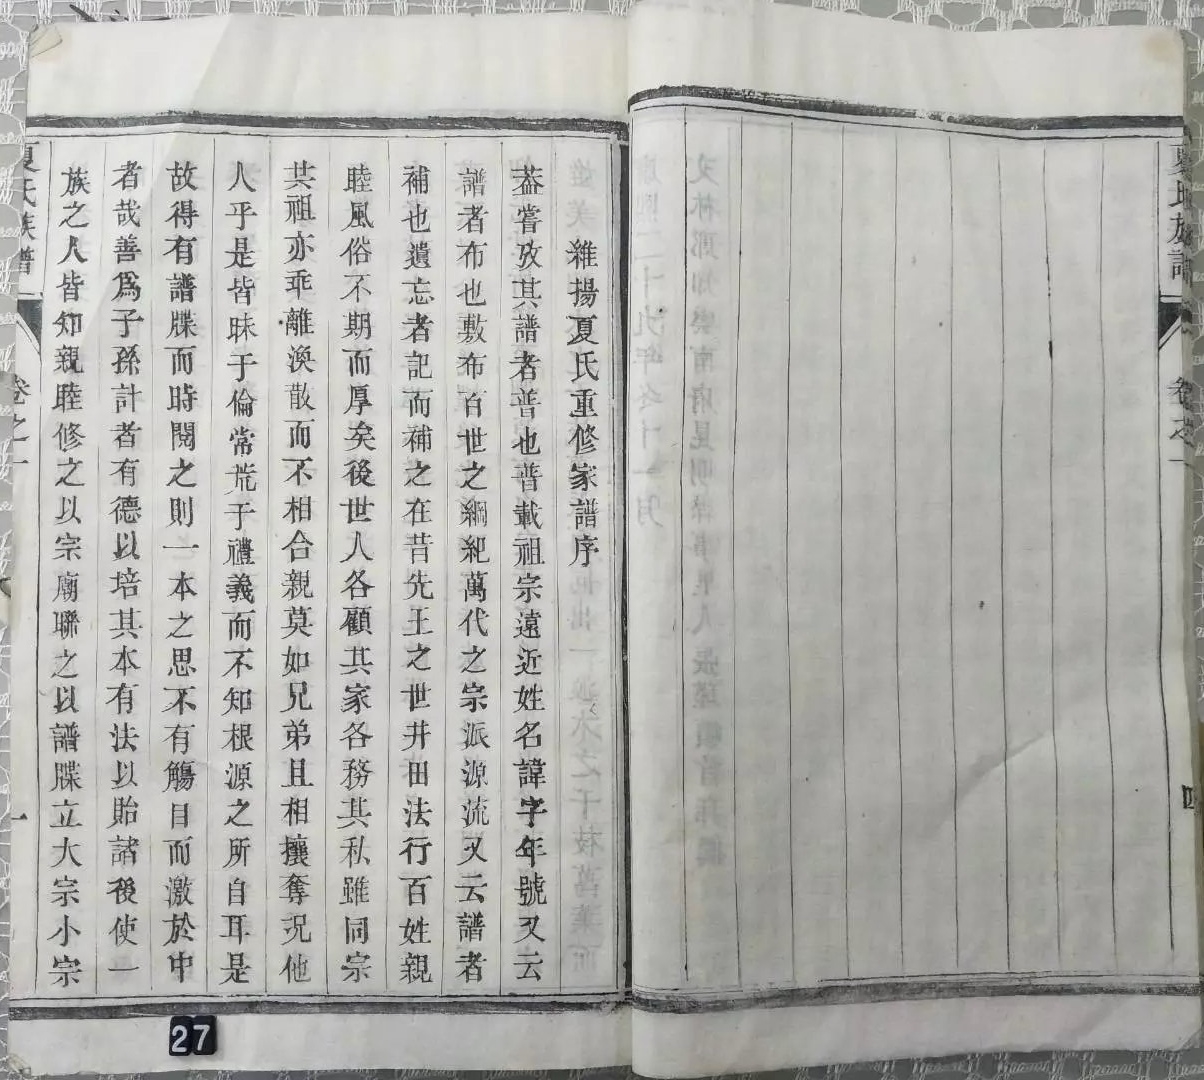 夏氏族譜
卷之一
四
維揚夏氏重修家譜序
葢嘗攷其譜者普也普載祖宗遠近姓名諱字年號又云
譜者布也敷布百世之綱紀萬代之宗派源流又云譜者
補也遺忘者記而補之在昔先王之世井田法行百姓親
睦風俗不期而厚矣後世人各顧其家各務其私雖同宗
共祖亦乖離渙散而不相合親莫如兄弟且相攘奪況他
人乎是皆昧于倫常荒于禮義而不知根源之所自耳是
故得有譜牒而時閱之則一本之思不有觸目而激於中
者哉善爲子孫計者有德以培其本有法以貽諸後使一
族之人皆知親睦修之以宗廟聯之以譜牒立大宗小宗
夏氏族譜
卷之一
一
27